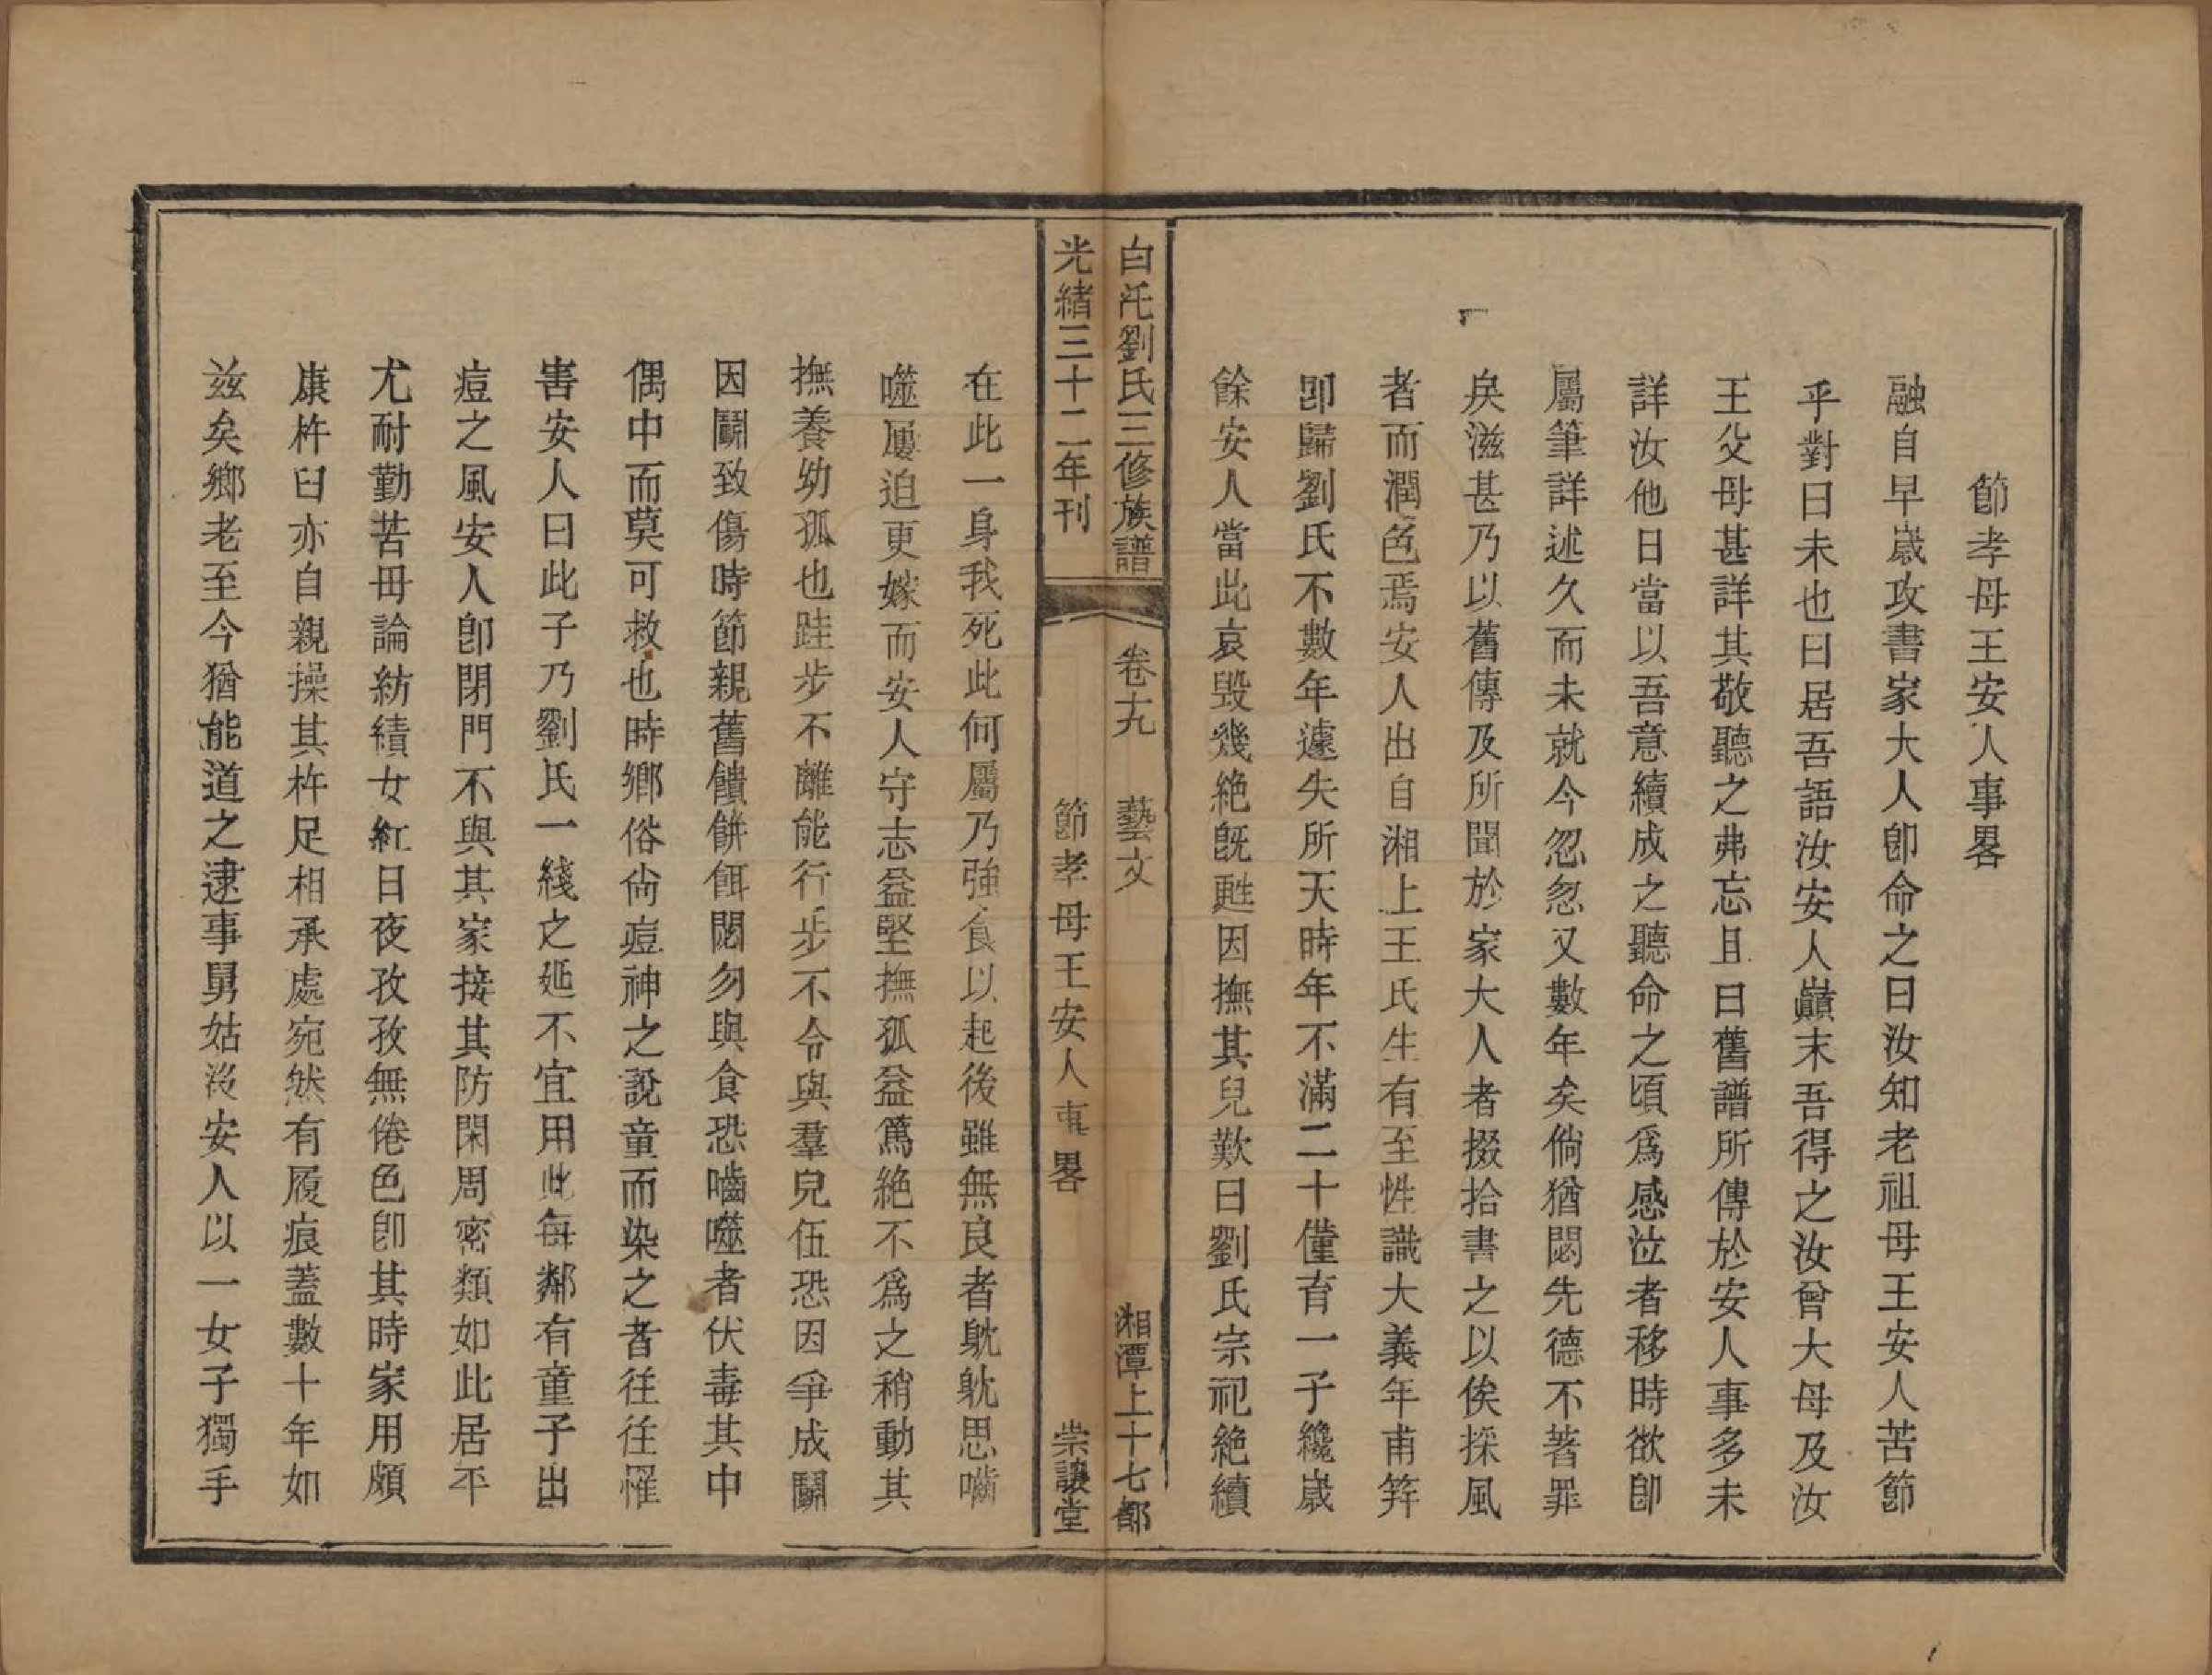 節孝母王安人事畧
融自早歲攻書家大人卽命之曰汝知老祖母王安人苦節
乎對曰未也曰居吾語汝安人巔末吾得之汝曾大母及汝
王父母甚詳其敬聽之弗忘且曰舊譜所傳於安人事多未
詳汝他日當以吾意續成之聽命之頃爲感泣者移時欲卽
屬筆詳述久而未就今忽忽又數年矣倘猶閟先德不著罪
矣滋甚乃以舊傳及所聞於家大人者掇拾書之以俟採風
者而潤色焉安人出自湘上王氏生有至性識大義年甫笄
卽歸劉氏不數年遽失所天時年不滿二十僅育一子纔歲
餘安人當此哀毀幾絶旣甦因撫其兒歎曰劉氏宗祀絶續
白汑劉氏三修族譜 卷十九 藝文 湘潭上十七都
光緒三十二年刊 節孝母王安人事畧 崇讓堂
在此一身我死此何屬乃強食以起後雖無良者躭躭思嚙
噬屢迫更嫁而安人守志益堅撫孤益篤絶不爲之稍動其
撫養幼孤也跬步不離能行步不令與羣兒伍恐因爭成鬭
因鬭致傷時節親舊饋餅餌閟勿與食恐嚙噬者伏毒其中
偶中而莫可救也時鄉俗尙痘神之說童而染之者往往罹
害安人曰此子乃劉氏一綫之延不宜用此每鄰有童子出
痘之風安人卽閉門不與其家接其防閑周密類如此居平
尤耐勤苦毋論紡績女紅日夜孜孜無倦色卽其時家用頗
康杵臼亦自親操其杵足相承處宛然有履痕蓋數十年如
兹矣鄉老至今猶能道之逮事舅姑沒安人以一女子獨手